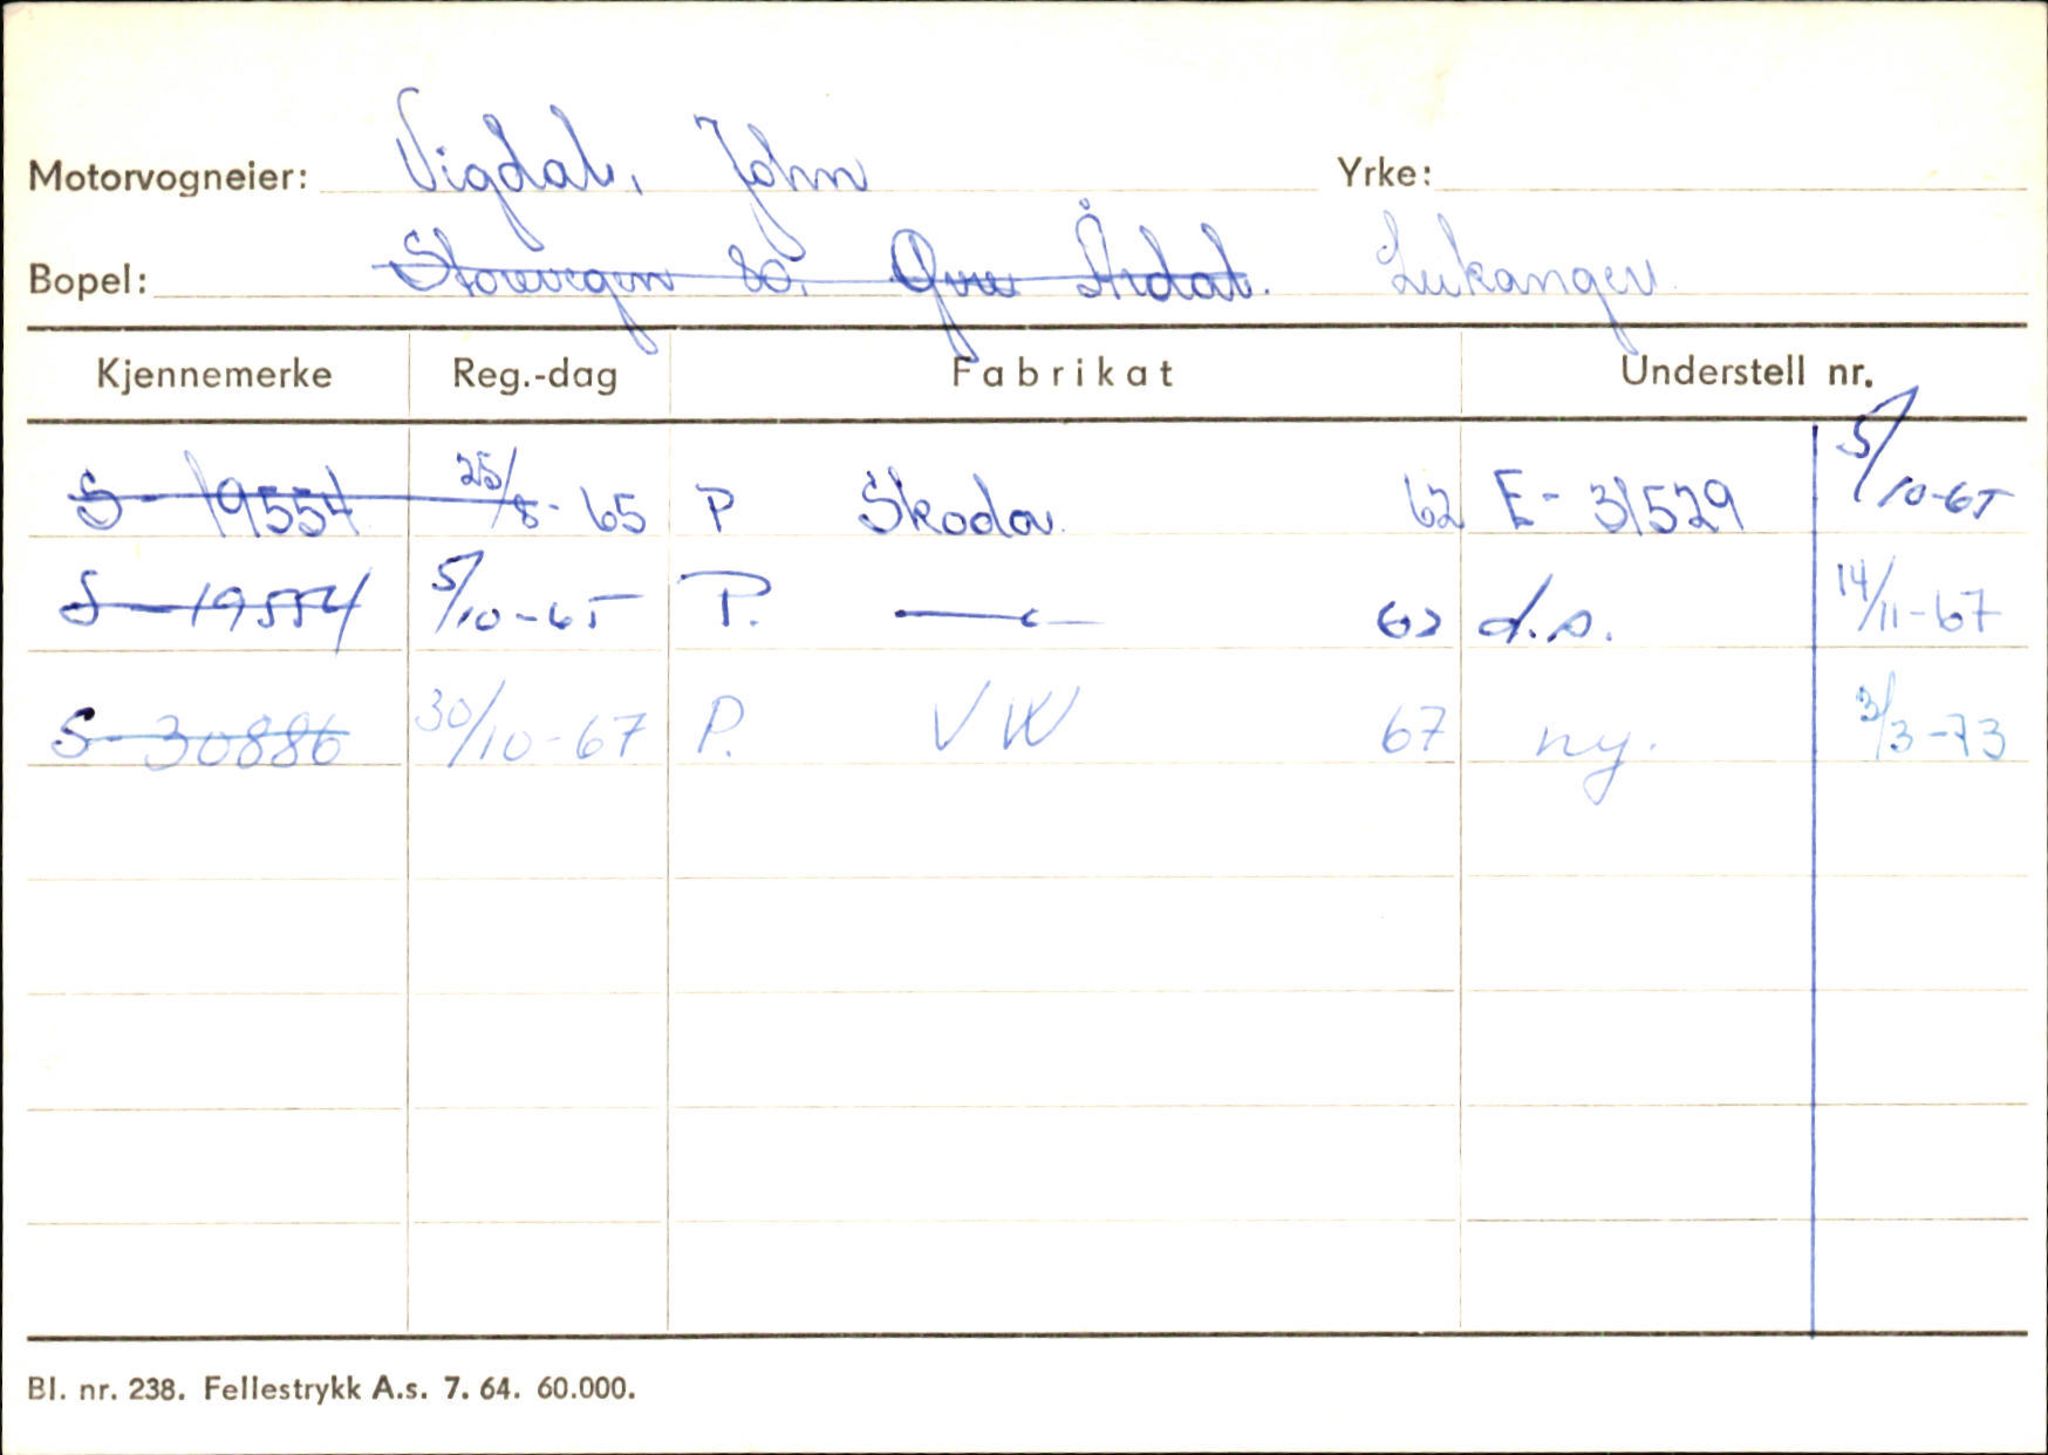 Motorvogneier: Vigdal, John Yrke:
Bopel: Storevegen 80, Øvre Årdal. Leikanger
Kjennemerke Reg.-dag Fabrikat Understell nr.
S-19554 25/8-65 P Skoda 62 E-31529 5/10-65
S-19554 5/10-65 P. —"— 62 d.s. 14/11-67
S-30886 30/10-67 P. VW 67 ny. 3/3-73
Bl. nr. 238. Fellestrykk A.s. 7. 64. 60.000.